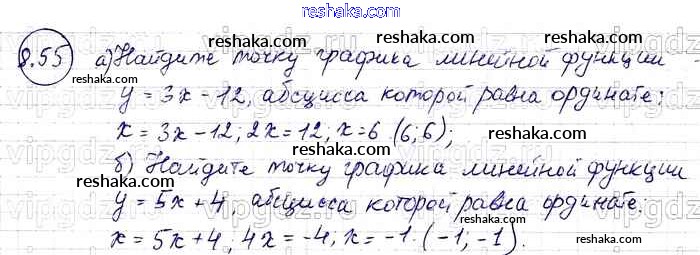 reshaka.com
8.55 а) Найдите точку графика линейной функции
y = 3x - 12, абсцисса которой равна ординате:
x = 3x - 12; 2x = 12; x = 6. (6; 6);
б) Найдите точку графика линейной функции
y = 5x + 4, абсцисса которой равна ординате:
x = 5x + 4; 4x = -4; x = -1. (-1; -1).
reshaka.com